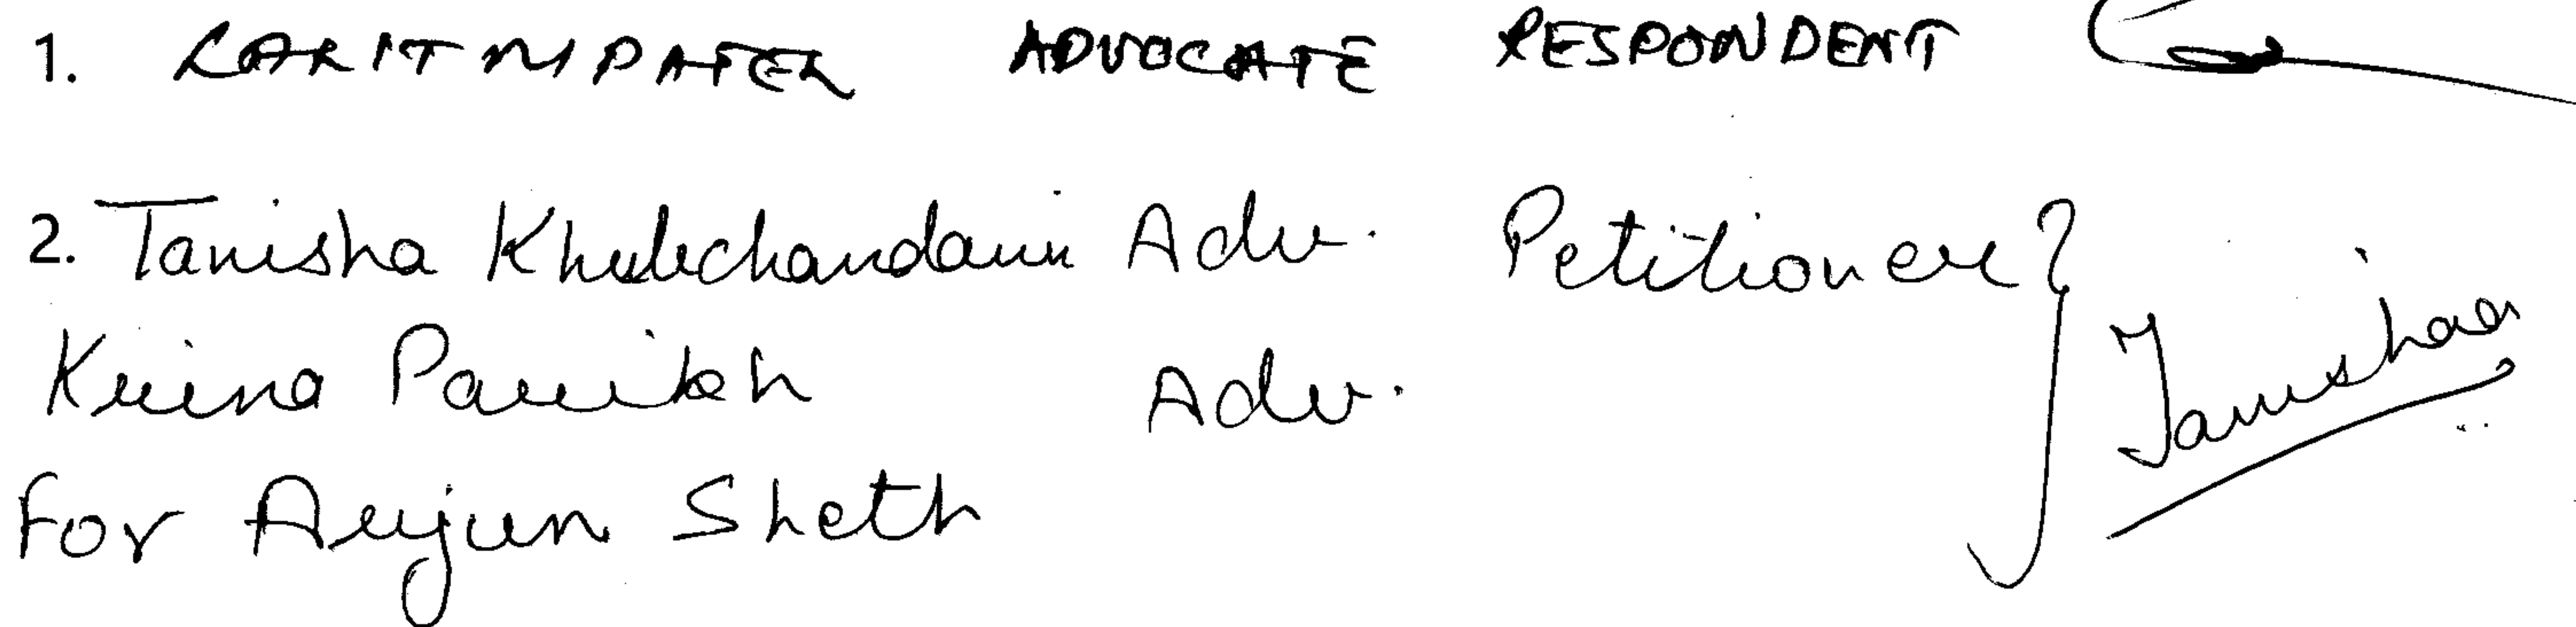 1. LALIT M PATEL ADVOCATE RESPONDENT
2. Tanisha Khubchandani Adv. Petitioner
Krina Parikh Adv.
For Arjun Sheth
Tanishaa